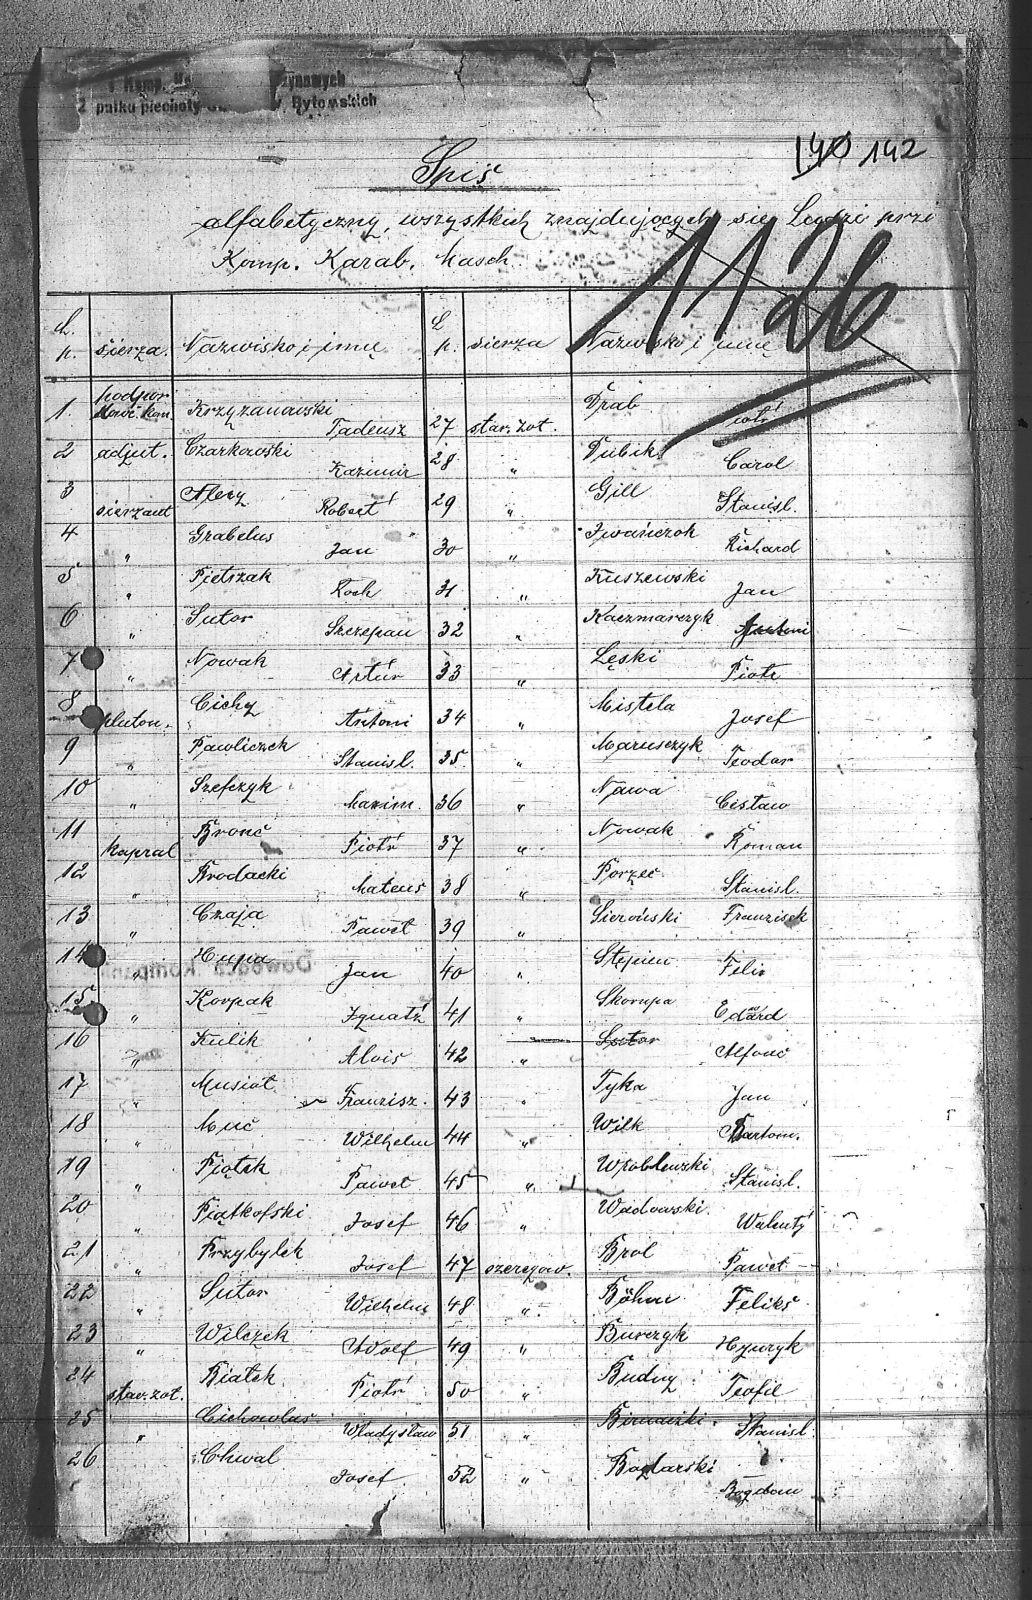 1 Komp. Ka
zynowych
2 pułku piechoty
Bytomskich
140 142
Spis
alfabetyczny, wszystkich znajdujących się Ludzi przi
Komp. Karab. Masch.
1126
L. p. sierza. Nazwisko i imię L. p. sierza Nazwisko i imię
1. podpor. Krzyzanowski Tadeusz 27 star. żot. Drab Piotr
2 adjut. Czarkowski Kazimir 28 " Dubik Carol
3 sierzant Robert 29 " Gill Stanisl.
4 " Grabelus Jan 30 " Iwańczok Richard
5 " Pietszak Roch 31 " Kuszewski Jan
6 " Sutor Szczepan 32 " Kaczmarczyk Antoni
7 " Nowak Artur 33 " Łęski Piotr
8 pluton. Cichy Antoni 34 " Mistela Josef
9 " Pawliczek Stanisl. 35 " Marusczyk Teodor
10 " Szefczyk Maxim. 36 " Nawa Cistaw
11 kapral Bronć Piotr 37 " Nowak Roman
12 " Brodacki Mateus 38 " Porzec Stanisl.
13 " Czaja Pawet 39 " Sieroński Franzisek
14 " Hupa Jan 40 " Stepien Felix
15 " Korpak Ignatz 41 " Skorupa Eduard
Dowódca Kompanii
16 " Kulik Alois 42 " Sutor Alfonc
17 " Musiot Franzisz. 43 " Tyka Jan
18 " Muc Wilhelm 44 " Wilk Bartom.
19 " Piątek Pawet 45 " Wroblewski Stanisl.
20 " Piątkofski Josef 46 " Wadowski Walenty
21 " Przybylek Josef 47 szeregow. Brol Pawet
22 " Sutor Wilhelm 48 " Böhm Feliks
23 " Wilczek Adolf 49 " Burczyk Henryk
24 star. żot. Biatek Piotr 50 " Budny Teofil
25 " Cichowlas Wladysław 51 " Stanisl.
26 Chwal Josef 52 " Bozlarski Bogdom